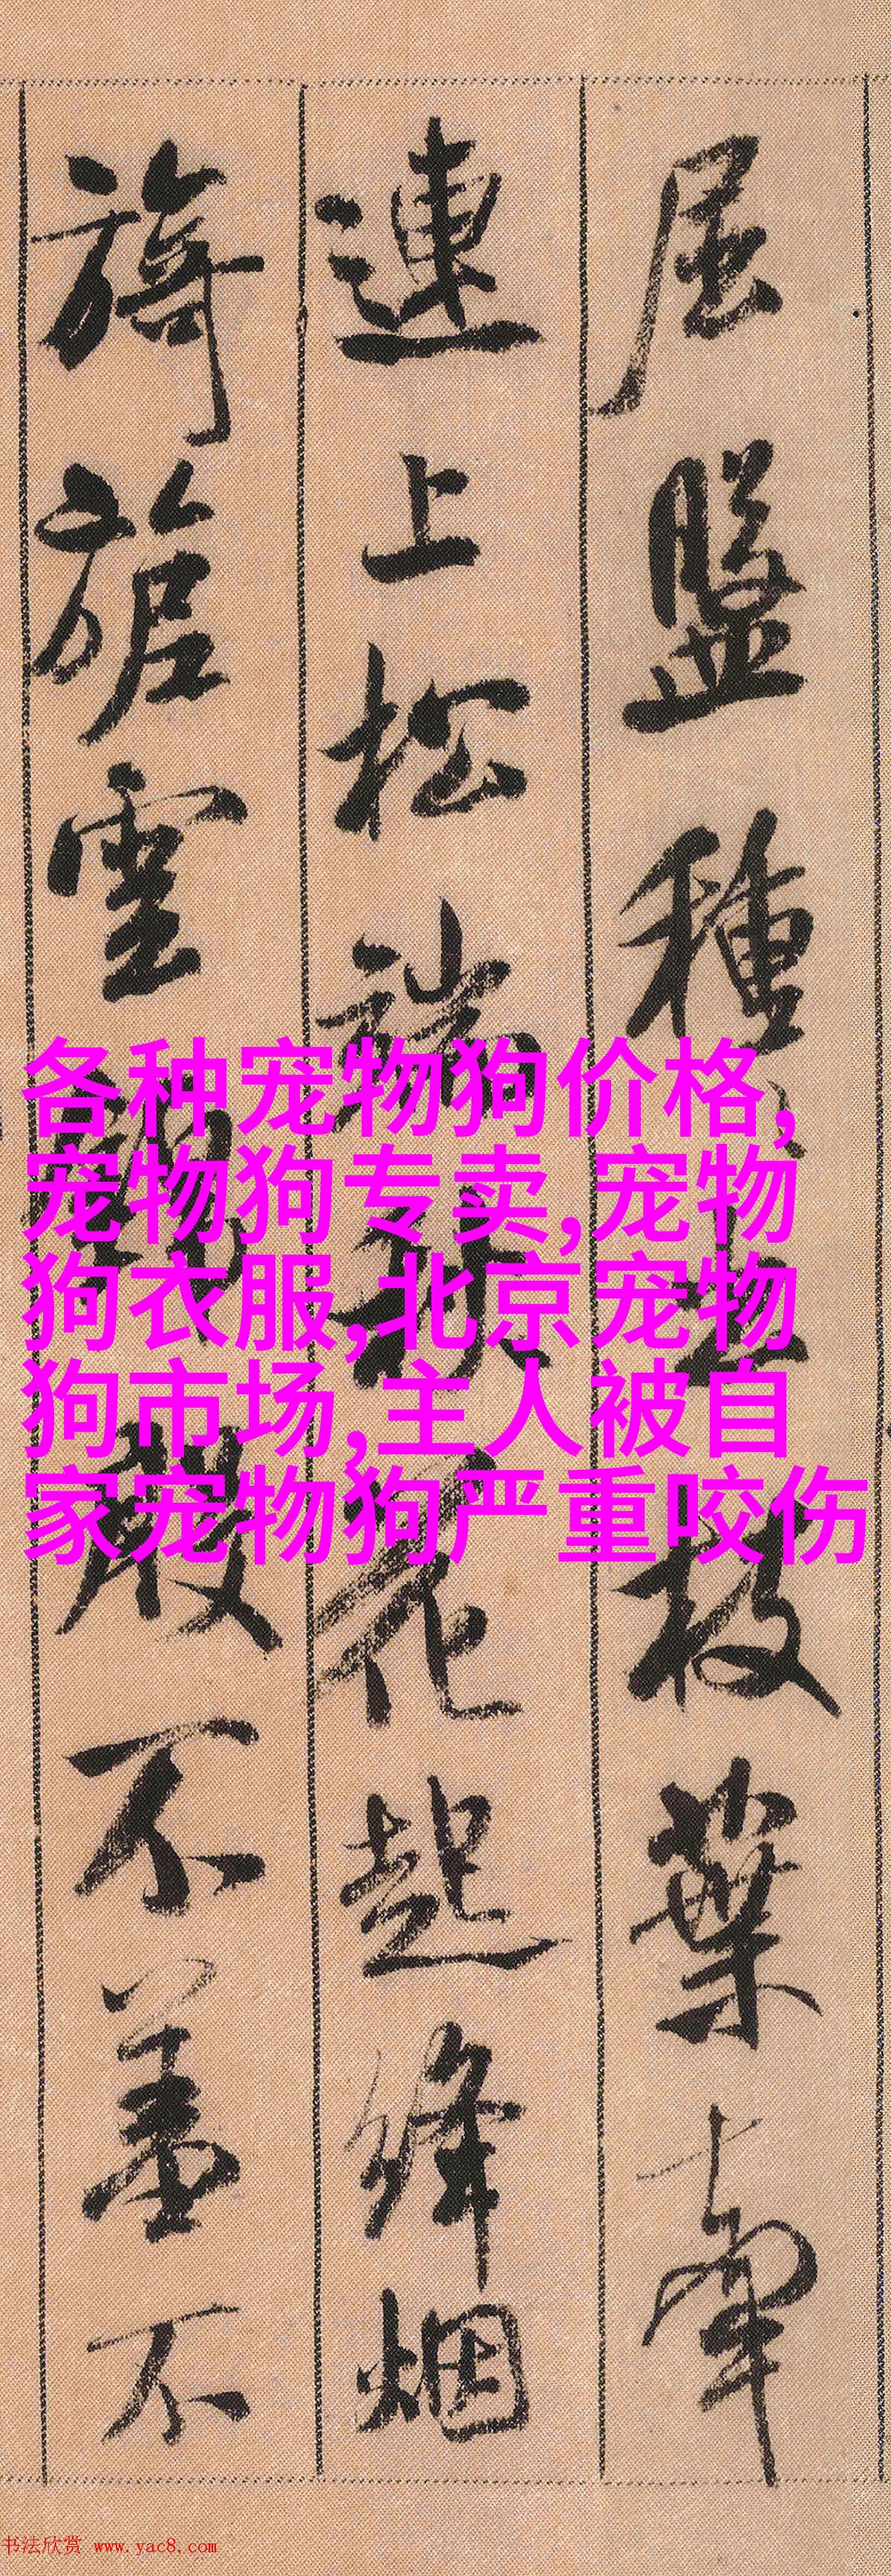 屈盤種〻出枝葉牽
連上松端秋花起絳烟
旖旎雲錦殷不羞不
各种宠物狗价格,
宠物狗专卖,宠物
狗衣服,北京宠物
狗市场,主人被自
家宠物狗严重咬伤
书法欣赏 www.yac8.com